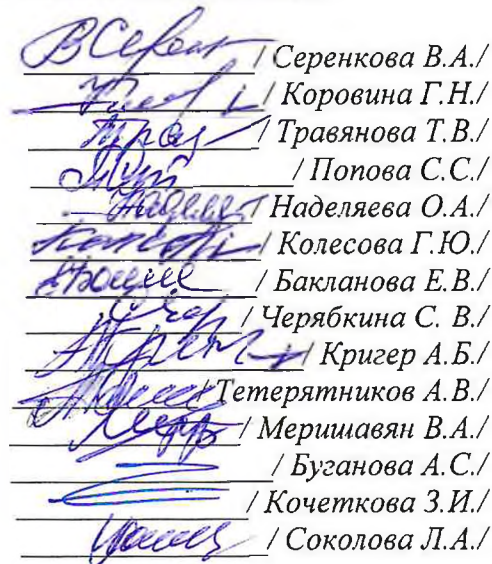 / Серенкова В.А./
/ Коровина Г.Н./
/ Травянова Т.В./
/ Попова С.С./
/ Наделяева О.А./
/ Колесова Г.Ю./
/ Бакланова Е.В./
/ Черябкина С. В./
/ Кригер А.Б./
/ Тетерятников А.В./
/ Меришавян В.А./
/ Буганова А.С./
/ Кочеткова З.И./
/ Соколова Л.А./